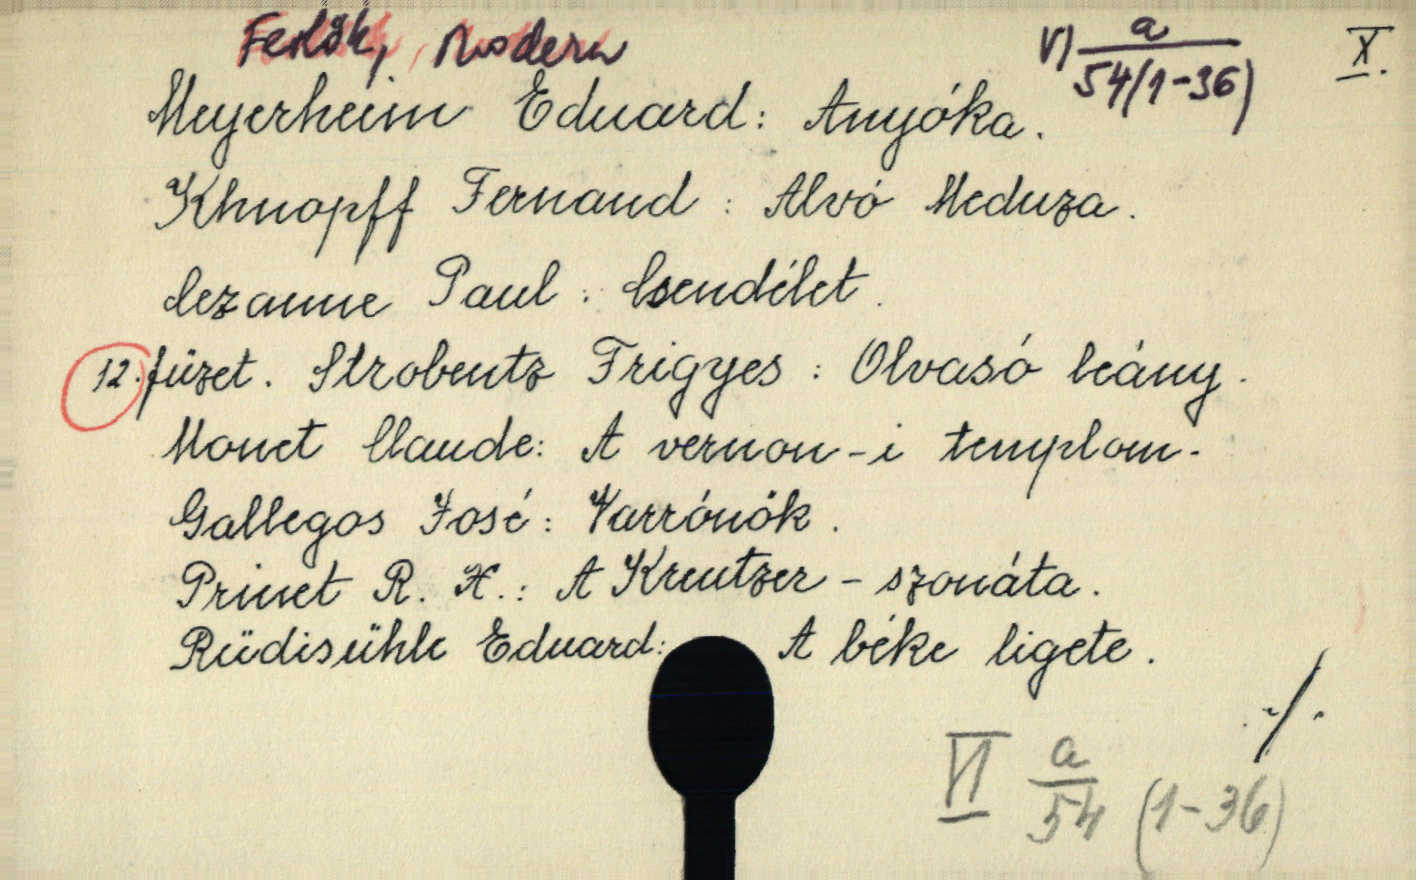 Festők, Modern VI a/54(1-36) X.
Meyerheim Eduard: Anyóka.
Khnopff Fernand: Alvó Meduza.
Cezanne Paul: Csendélet.
12. füzet. Strobentz Frigyes: Olvasó leány.
Monet Claude: A vernon-i templom.
Gallegos José: Varrónők.
Prinet R. X.: A Kreutzer-szonáta.
Rüdisühle Eduard: A béke ligete.
./.
VI a/54 (1-36)